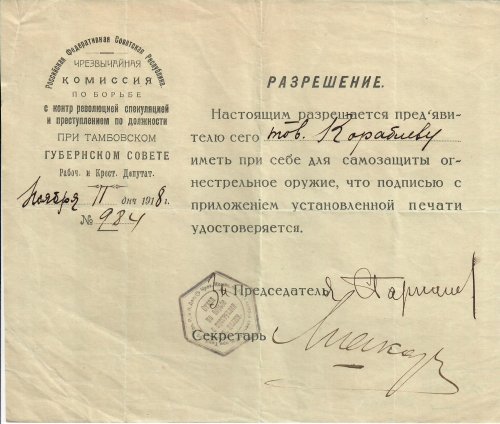 Российская Федеративная Советская Республика.
ЧРЕЗВЫЧАЙНАЯ
КОМИССИЯ
ПО БОРЬБЕ
с контр революцией спекуляцией
и преступлением по должности
ПРИ ТАМБОВСКОМ
ГУБЕРНСКОМ СОВЕТЕ
Рабоч. и Крест. Депутат.
Ноября 11 дня 1918 г.
№ 984
РАЗРЕШЕНИЕ.
Настоящим разрешается пред‘яви-
телю сего тов. Кораблеву
иметь при себе для самозащиты ог-
нестрельное оружие, что подписью с
приложением установленной печати
удостоверяется.
Зa Председателя
Секретарь